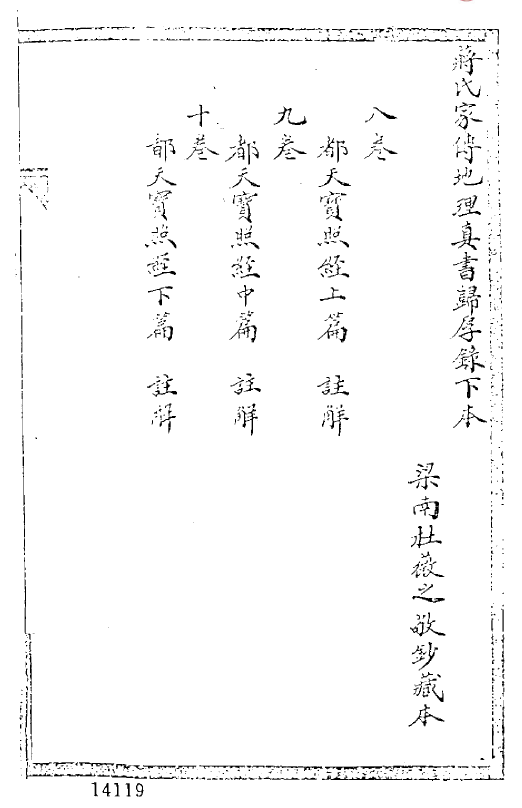 蔣氏家傳地理真書歸厚錄下本
梁南壯薇之敬鈔藏本
八卷
都天寶照經上篇　註解
九卷
都天寶照經中篇　註解
十卷
都天寶照經下篇　註解
14119